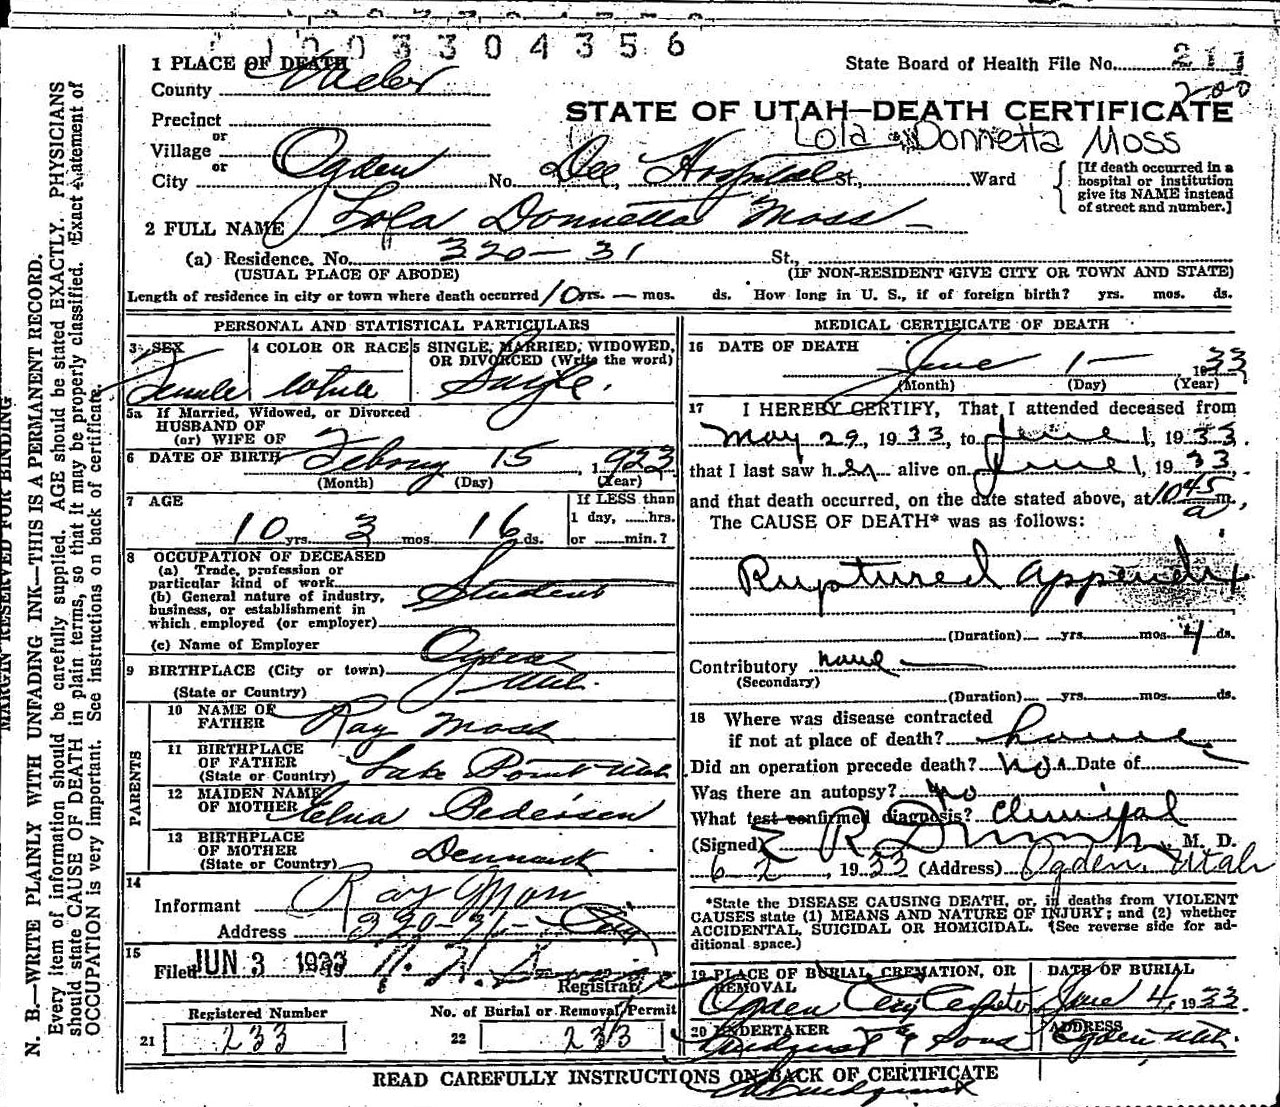 1003304356
1 PLACE OF DEATH
County Weber
State Board of Health File No. 211
200
Precinct
or
Village
or
City Ogden No. Dee Hospital St., Ward
STATE OF UTAH—DEATH CERTIFICATE
Lola Donnetta Moss
[If death occurred in a
hospital or institution
give its NAME instead
of street and number.]
2 FULL NAME Lola Donnetta Moss
(a) Residence. No. 320-31 St.,
(USUAL PLACE OF ABODE) (IF NON-RESIDENT GIVE CITY OR TOWN AND STATE)
Length of residence in city or town where death occurred 10 yrs. — mos. ds. How long in U. S., if of foreign birth? yrs. mos. ds.
PERSONAL AND STATISTICAL PARTICULARS
3 SEX 4 COLOR OR RACE 5 SINGLE, MARRIED, WIDOWED,
OR DIVORCED (Write the word)
Female white Single.
5a If Married, Widowed, or Divorced
HUSBAND OF
(or) WIFE OF
6 DATE OF BIRTH 15, 1923
(Month) (Day) (Year)
7 AGE
If LESS than
1 day, ......hrs.
or ........min.?
10 yrs. 3 mos. 16 ds.
8 OCCUPATION OF DECEASED
(a) Trade, profession or
particular kind of work
Student
(b) General nature of industry,
business, or establishment in
which employed (or employer)
(c) Name of Employer
9 BIRTHPLACE (City or town) Ogden
(State or Country) Utah.
PARENTS
10 NAME OF
FATHER Ray Moss
11 BIRTHPLACE
OF FATHER
(State or Country) Lake Point Utah
12 MAIDEN NAME
OF MOTHER Pedersen
13 BIRTHPLACE
OF MOTHER
(State or Country) Denmark
14
Informant Ray Moss
Address 320-31- City
15
Filed JUN 3 1933
Registrar
Registered Number No. of Burial or Removal Permit
21 233 22 233
MEDICAL CERTIFICATE OF DEATH
16 DATE OF DEATH
June 1— 1933
(Month) (Day) (Year)
17 I HEREBY CERTIFY, That I attended deceased from
May 29, 1933, to June 1, 1933.
that I last saw her alive on June 1, 1933,
and that death occurred, on the date stated above, at 10 45 a m.
The CAUSE OF DEATH* was as follows:
Ruptured appendix
(Duration) yrs. mos. 4 ds.
Contributory none
(Secondary)
(Duration) yrs. mos. ds.
18 Where was disease contracted
if not at place of death? home
Did an operation precede death? no Date of
Was there an autopsy? no
What test confirmed diagnosis? Clinical
(Signed) E R M. D.
6-2, 1933 (Address) Ogden, Utah
*State the DISEASE CAUSING DEATH, or, in deaths from VIOLENT
CAUSES state (1) MEANS AND NATURE OF INJURY; and (2) whether
ACCIDENTAL, SUICIDAL OR HOMICIDAL. (See reverse side for ad-
ditional space.)
19 PLACE OF BURIAL, CREMATION, OR
REMOVAL
DATE OF BURIAL
Ogden City June 4, 1933
20 UNDERTAKER ADDRESS
& Sons Ogden Utah.
READ CAREFULLY INSTRUCTIONS ON BACK OF CERTIFICATE
MARGIN RESERVED FOR BINDING
N. B.—WRITE PLAINLY WITH UNFADING INK—THIS IS A PERMANENT RECORD.
Every item of information should be carefully supplied. AGE should be stated EXACTLY. PHYSICIANS
should state CAUSE OF DEATH in plain terms, so that it may be properly classified. Exact statement of
OCCUPATION is very important. See instructions on back of certificate.